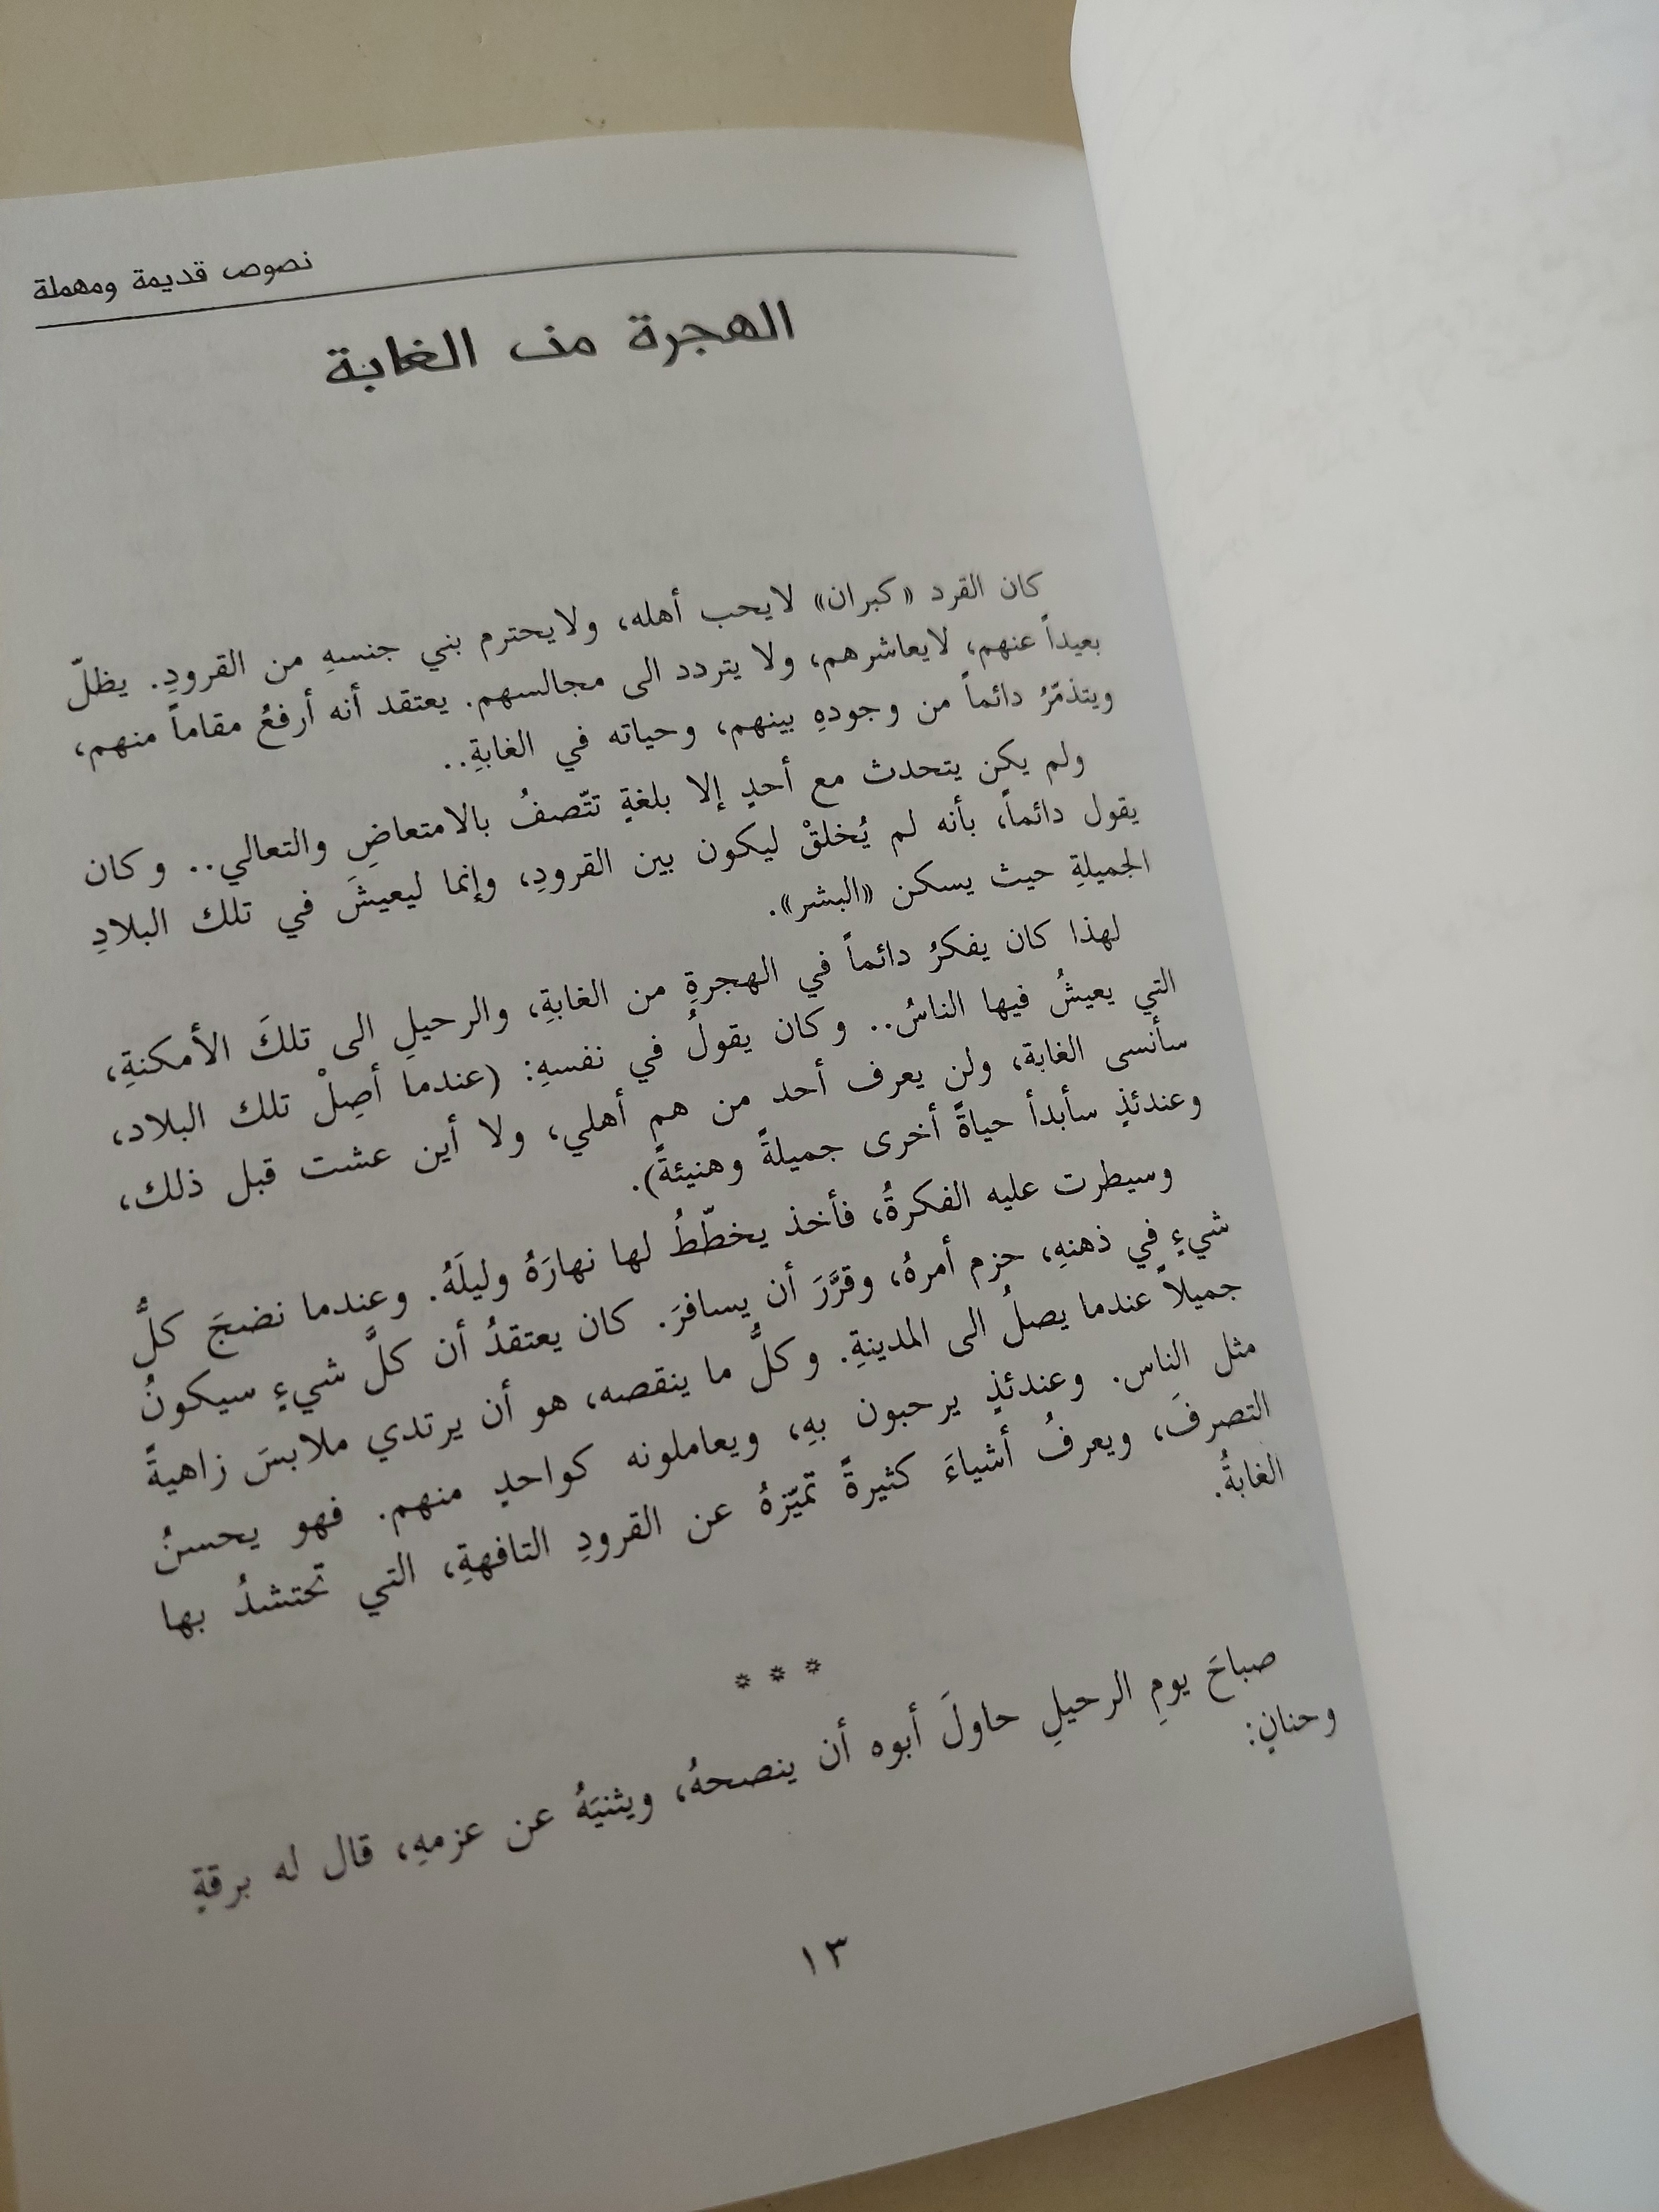 نصوص قديمة ومهملة
الهجرة من الغابة
كان القرد «كبران» لايحب أهله، ولايحترم بني جنسهِ من القرودِ. يظلّ
بعيداً عنهم، لايعاشرهم، ولا يتردد الى مجالسهم. يعتقد أنه أرفعُ مقاماً منهم،
ويتذمّرُ دائماً من وجودهِ بينهم، وحياته في الغابةِ..
ولم يكن يتحدث مع أحدٍ إلا بلغةٍ تتّصفُ بالامتعاضِ والتعالي.. وكان
يقول دائماً، بأنه لم يُخلقْ ليكون بين القرودِ، وإنما ليعيشَ في تلك البلادِ
الجميلةِ حيث يسكن «البشر».
لهذا كان يفكرُ دائماً في الهجرةِ من الغابةِ، والرحيلِ الى تلكَ الأمكنةِ،
التي يعيشُ فيها الناسُ.. وكان يقولُ في نفسهِ: (عندما أصِلْ تلك البلاد،
سأنسى الغابة، ولن يعرف أحد من هم أهلي، ولا أين عشت قبل ذلك،
وعندئذٍ سأبدأ حياةً أخرى جميلةً وهنيئةً).
وسيطرت عليه الفكرةُ، فأخذ يخطّطُ لها نهارَهُ وليلَهُ. وعندما نضجَ كلُّ
شيءٍ في ذهنهِ، حزم أمرهُ، وقرَّرَ أن يسافرَ. كان يعتقدُ أن كلَّ شيءٍ سيكونُ
جميلاً عندما يصلُ الى المدينةِ. وكلُّ ما ينقصه، هو أن يرتدي ملابسَ زاهيةً
مثل الناس. وعندئذٍ يرحبون بهِ، ويعاملونه كواحدٍ منهم. فهو يحسنُ
التصرفَ، ويعرفُ أشياءَ كثيرةً تميّزهُ عن القرودِ التافهةِ، التي تحتشدُ بها
الغابةُ.
* * *
صباحَ يومِ الرحيلِ حاولَ أبوه أن ينصحهُ، ويثنيَهُ عن عزمهِ، قال له برقةٍ
وحنانٍ:
١٣